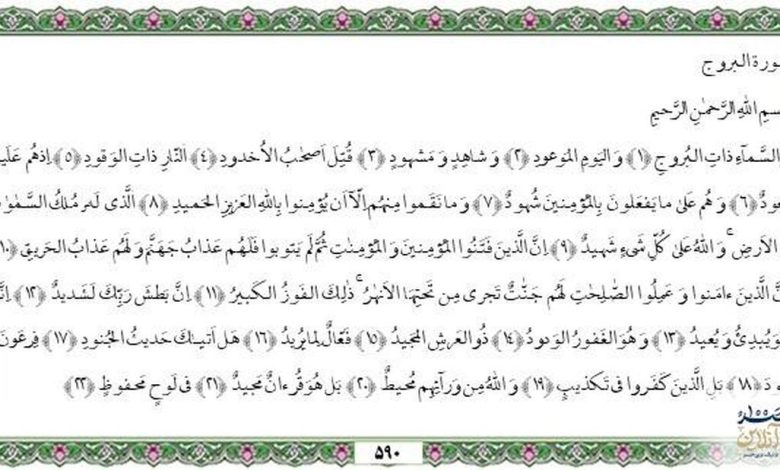 ورة البروج
سمِ اللهِ الرَّحمٰنِ الرَّحيمِ
السَّمآءِ ذاتِ البُروجِ ﴿١﴾ وَاليَومِ المَوعودِ ﴿٢﴾ وَ شاهِدٍ وَ مَشهودٍ ﴿٣﴾ قُتِلَ اَصحٰبُ الاُخدودِ ﴿٤﴾ اَلنّارِ ذاتِ الوَقودِ ﴿٥﴾ اِذهُم عَلَي
عودٌ ﴿٦﴾ وَ هُم عَلىٰ ما يَفعَلونَ بِالمُؤمِنينَ شُهودٌ ﴿٧﴾ وَ ما نَقَموا مِنهُم اِلّآ اَن يُؤمِنوا بِاللهِ العَزيزِ الحَميدِ ﴿٨﴾ الَّذى لَه‌ مُلكُ السَّمٰوٰ
الاَرضِ ۚ وَاللهُ عَلىٰ كُلِّ شَىءٍ شَهيدٌ ﴿٩﴾ اِنَّ الَّذينَ فَتَنُوا المُؤمِنينَ وَ المُؤمِنٰتِ ثُمَّ لَم يَتوبوا فَلَهُم عَذابُ جَهَنَّمَ وَ لَهُم عَذابُ الحَريقِ ﴿١٠
نَّ الَّذينَ ءامَنوا وَ عَمِلُوا الصّٰلِحٰتِ لَهُم جَنّٰتٌ تَجرى مِن تَحتِهَا الاَنهٰرُ ۚ ذٰلِكَ الفَوزُ الكَبيرُ ﴿١١﴾ اِنَّ بَطشَ رَبِّكَ لَشَديدٌ ﴿١٢﴾ اِنَّ
وَ يُبدِئُ وَ يُعيدُ ﴿١٣﴾ وَ هُوَ الغَفورُ الوَدودُ ﴿١٤﴾ ذُو العَرشِ المَجيدُ ﴿١٥﴾ فَعّالٌ لِما يُريدُ ﴿١٦﴾ هَل اَتىٰكَ حَديثُ الجُنودِ ﴿١٧﴾ فِرعَونَ
دَ ﴿١٨﴾ بَلِ الَّذينَ كَفَروا فى تَكذيبٍ ﴿١٩﴾ وَ اللهُ مِن وَرآئِهِم مُحيطٌ ﴿٢٠﴾ بَل هُوَ قُرءانٌ مَجيدٌ ﴿٢١﴾ فى لَوحٍ مَحفوظٍ ﴿٢٢﴾
۵۹۰